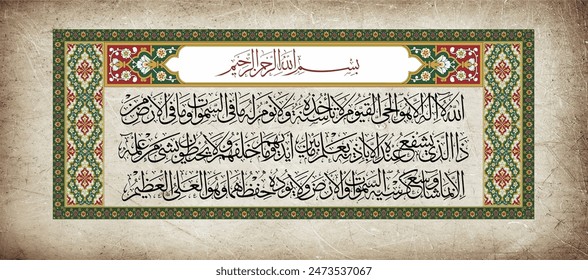 بسم الله الرحمن الرحيم
الله لا اله الا هو الحي القيوم لا تاخذه سنة ولا نوم له ما في السموات وما في الارض من
ذا الذي يشفع عنده الا باذنه يعلم ما بين ايديهم وما خلفهم ولا يحيطون بشيء من علمه
الا بما شاء وسع كرسيه السموات والارض ولا يوده حفظهما وهو العلي العظيم
shutterstock
IMAGE ID: 2473537067
www.shutterstock.com